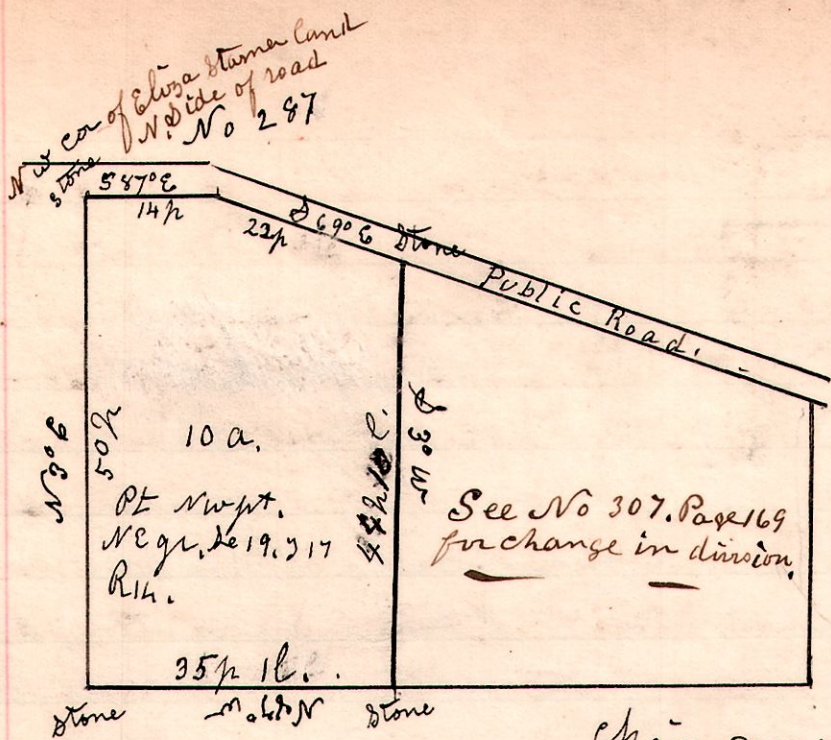 N W cor of Eliza Starner land
N. Side of road
No 287
Stone
S 87° E
14 p
S 69° E Stone
22 p
Public Road.
N 3° E
50 p
10 a.
Pt Nw pt.
NE qr. Se 19. T 17
R 14.
S 3° W
See No 307. Page 169
for change in division.
35 p 1 l.
Stone
Stone